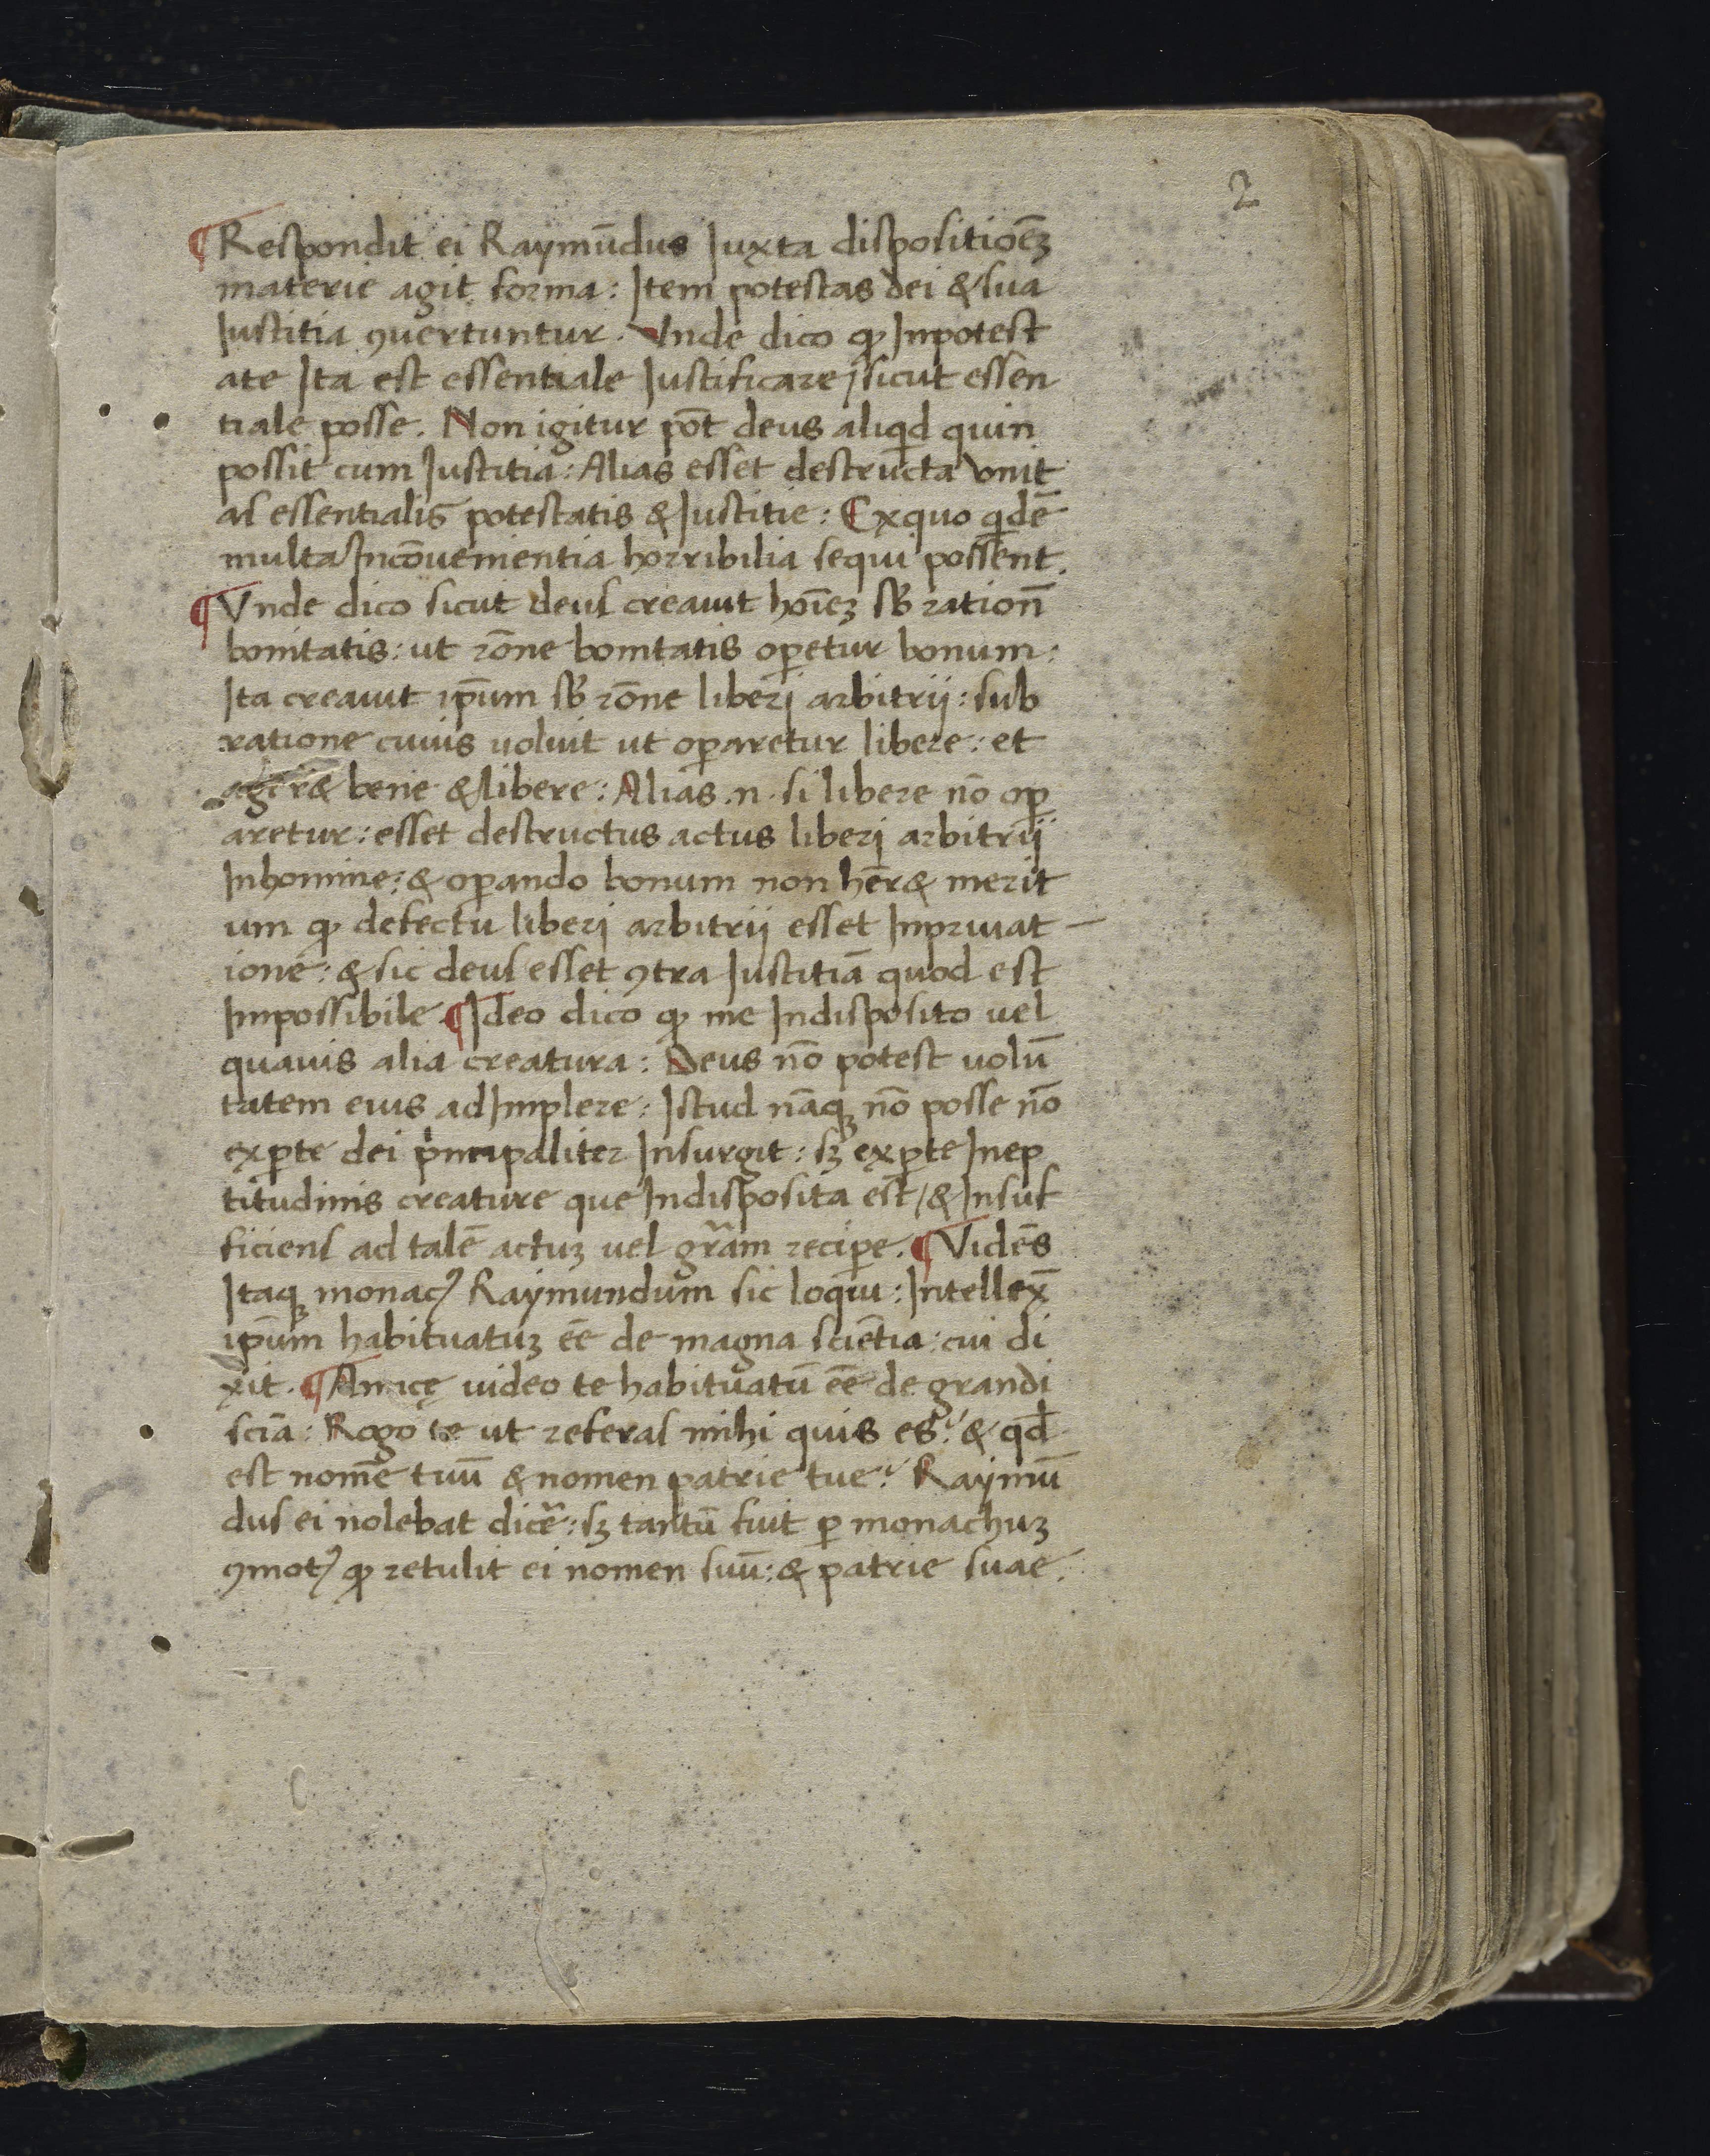 2
¶Respondit ei Raymūdus Iuxta dispositiōeꝫ
materie agit forma: Item potestas dei & sua
Iustitia ꝯuertuntur. Vnde dico ꝙ Inpotest
ate Ita est essentiale Iustificare / sicut essen
tiale posse. Non igitur pōt deus aliqd quin
possit cum Iustitia: Alias esset destructa vnit
as essentialis potestatis & Iustitie: Exquo qdē
multa Incōuenientia horribilia sequi possent.
¶Vnde dico sicut deus creauit hoīeꝫ sƀ rationē
bonitatis: ut rōne bonitatis oꝑetur bonum:
Ita creauit ip̄um sƀ rōne liberi arbitrii: sub
ratione cuius uoluit ut oꝑaretur libere: et
ager& bene & libere: Alias .n. si libere nō oꝑ
aretur: esset destructus actus liberi arbitrii
Inhomine: & oꝑando bonum non hēr& merit
um ꝙ defectu liberi arbitrii esset Inpriuat –
ione: & sic deus esset ꝯtra Iustitiā quod est
Impossibile. ¶Ideo dico ꝙ me Indisposito vel
quauis alia creatura: Deus nō potest uolū
tatem eius adImplere: Istud nāqꝫ nō posse nō
exꝑte dei pͥncipaliter Insurgit: sꝫ exꝑte Inep
titudinis creature que Indisposita est / & Insuf
ficiens ad talē actuꝫ vel gr̄am reciꝑe. ¶Vidēs
Itaqꝫ monacꝰ Raymundum sic loqui: Intellex̄
ip̄um habituatuꝫ ēē de magna sciētia: cui di
xit. ¶Amicę uideo te habituatū ēē de grandi
sciā: Rogo te ut referas mihi quis es? & qd
est nomē tuū & nomen patrie tue? Raymū
dus ei nolebat dicē: sꝫ tantū fuit ꝑ monachuꝫ
ꝯmotꝰ ꝙ retulit ei nomen suū: & patrie suae.